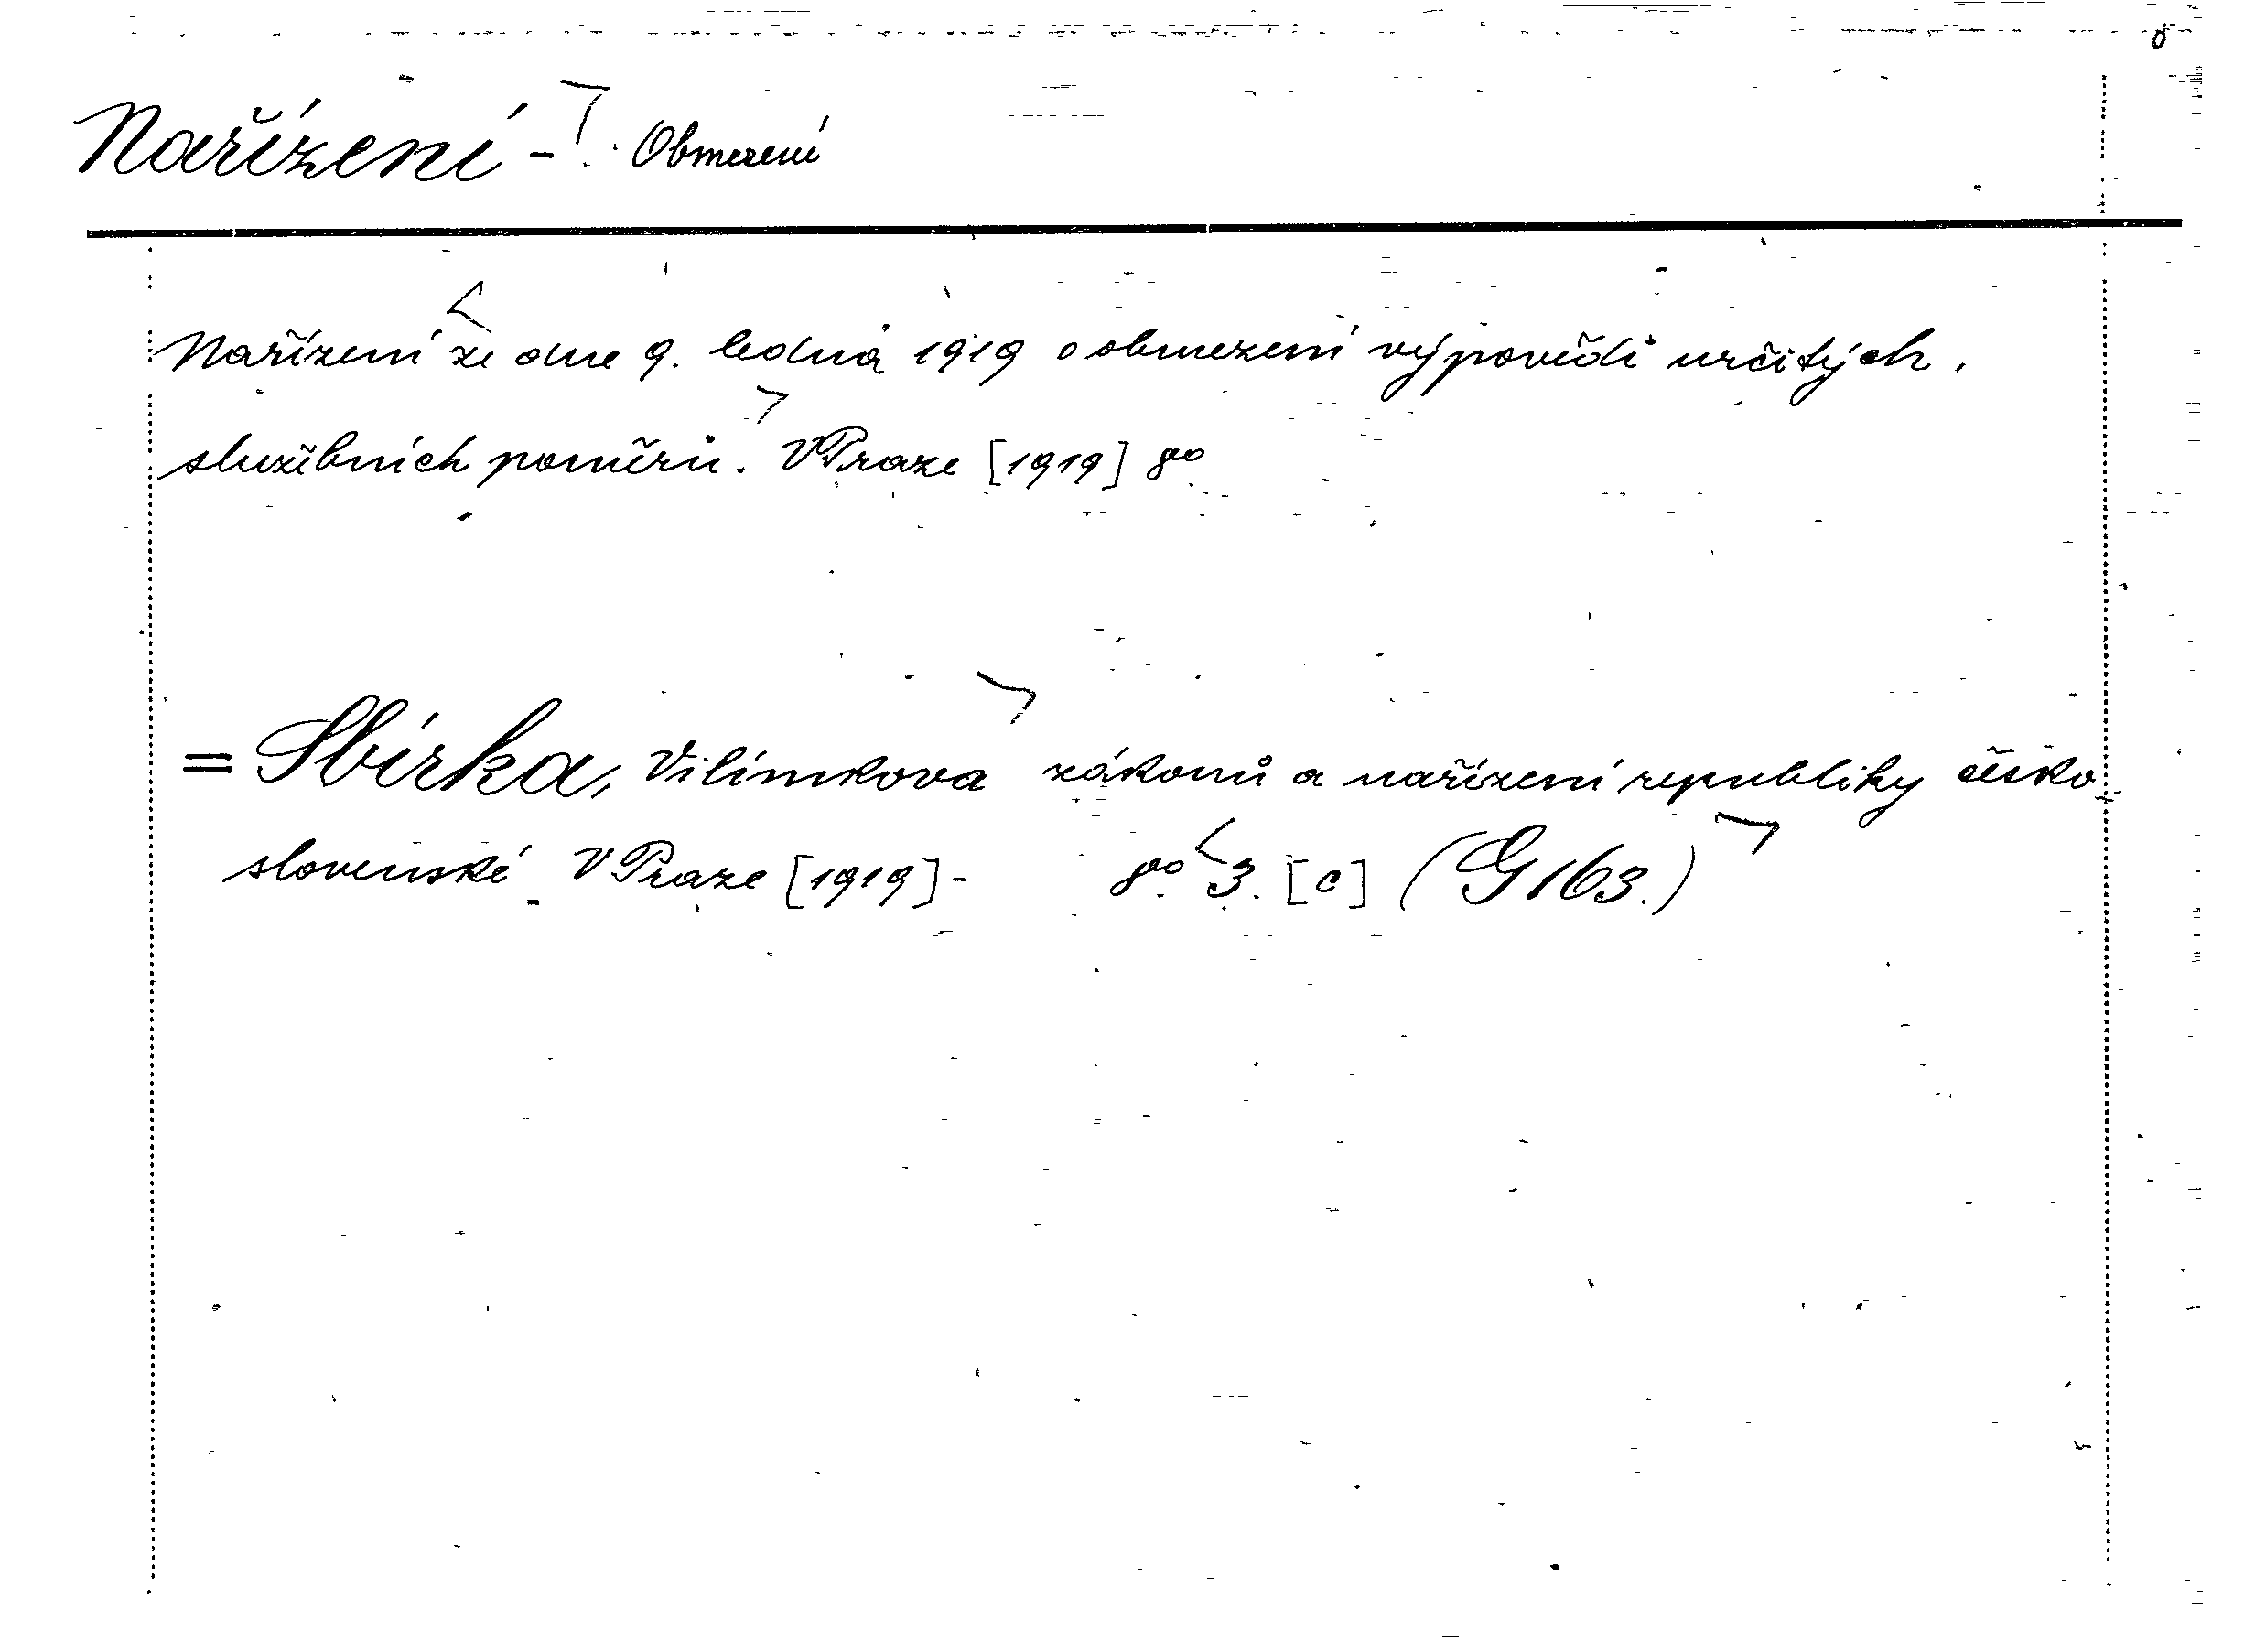 Nařízení - Obmezení
Nařízení ze dne 9. ledna 1919 o obmezení výpovědi určitých
služebních poměrů. V Praze [1919] 8º
= Sbírka, Vilímkova zákonů a nařízení republiky česko-
slovenské. V Praze [1919]- 8º 3. [c] (G 163.)